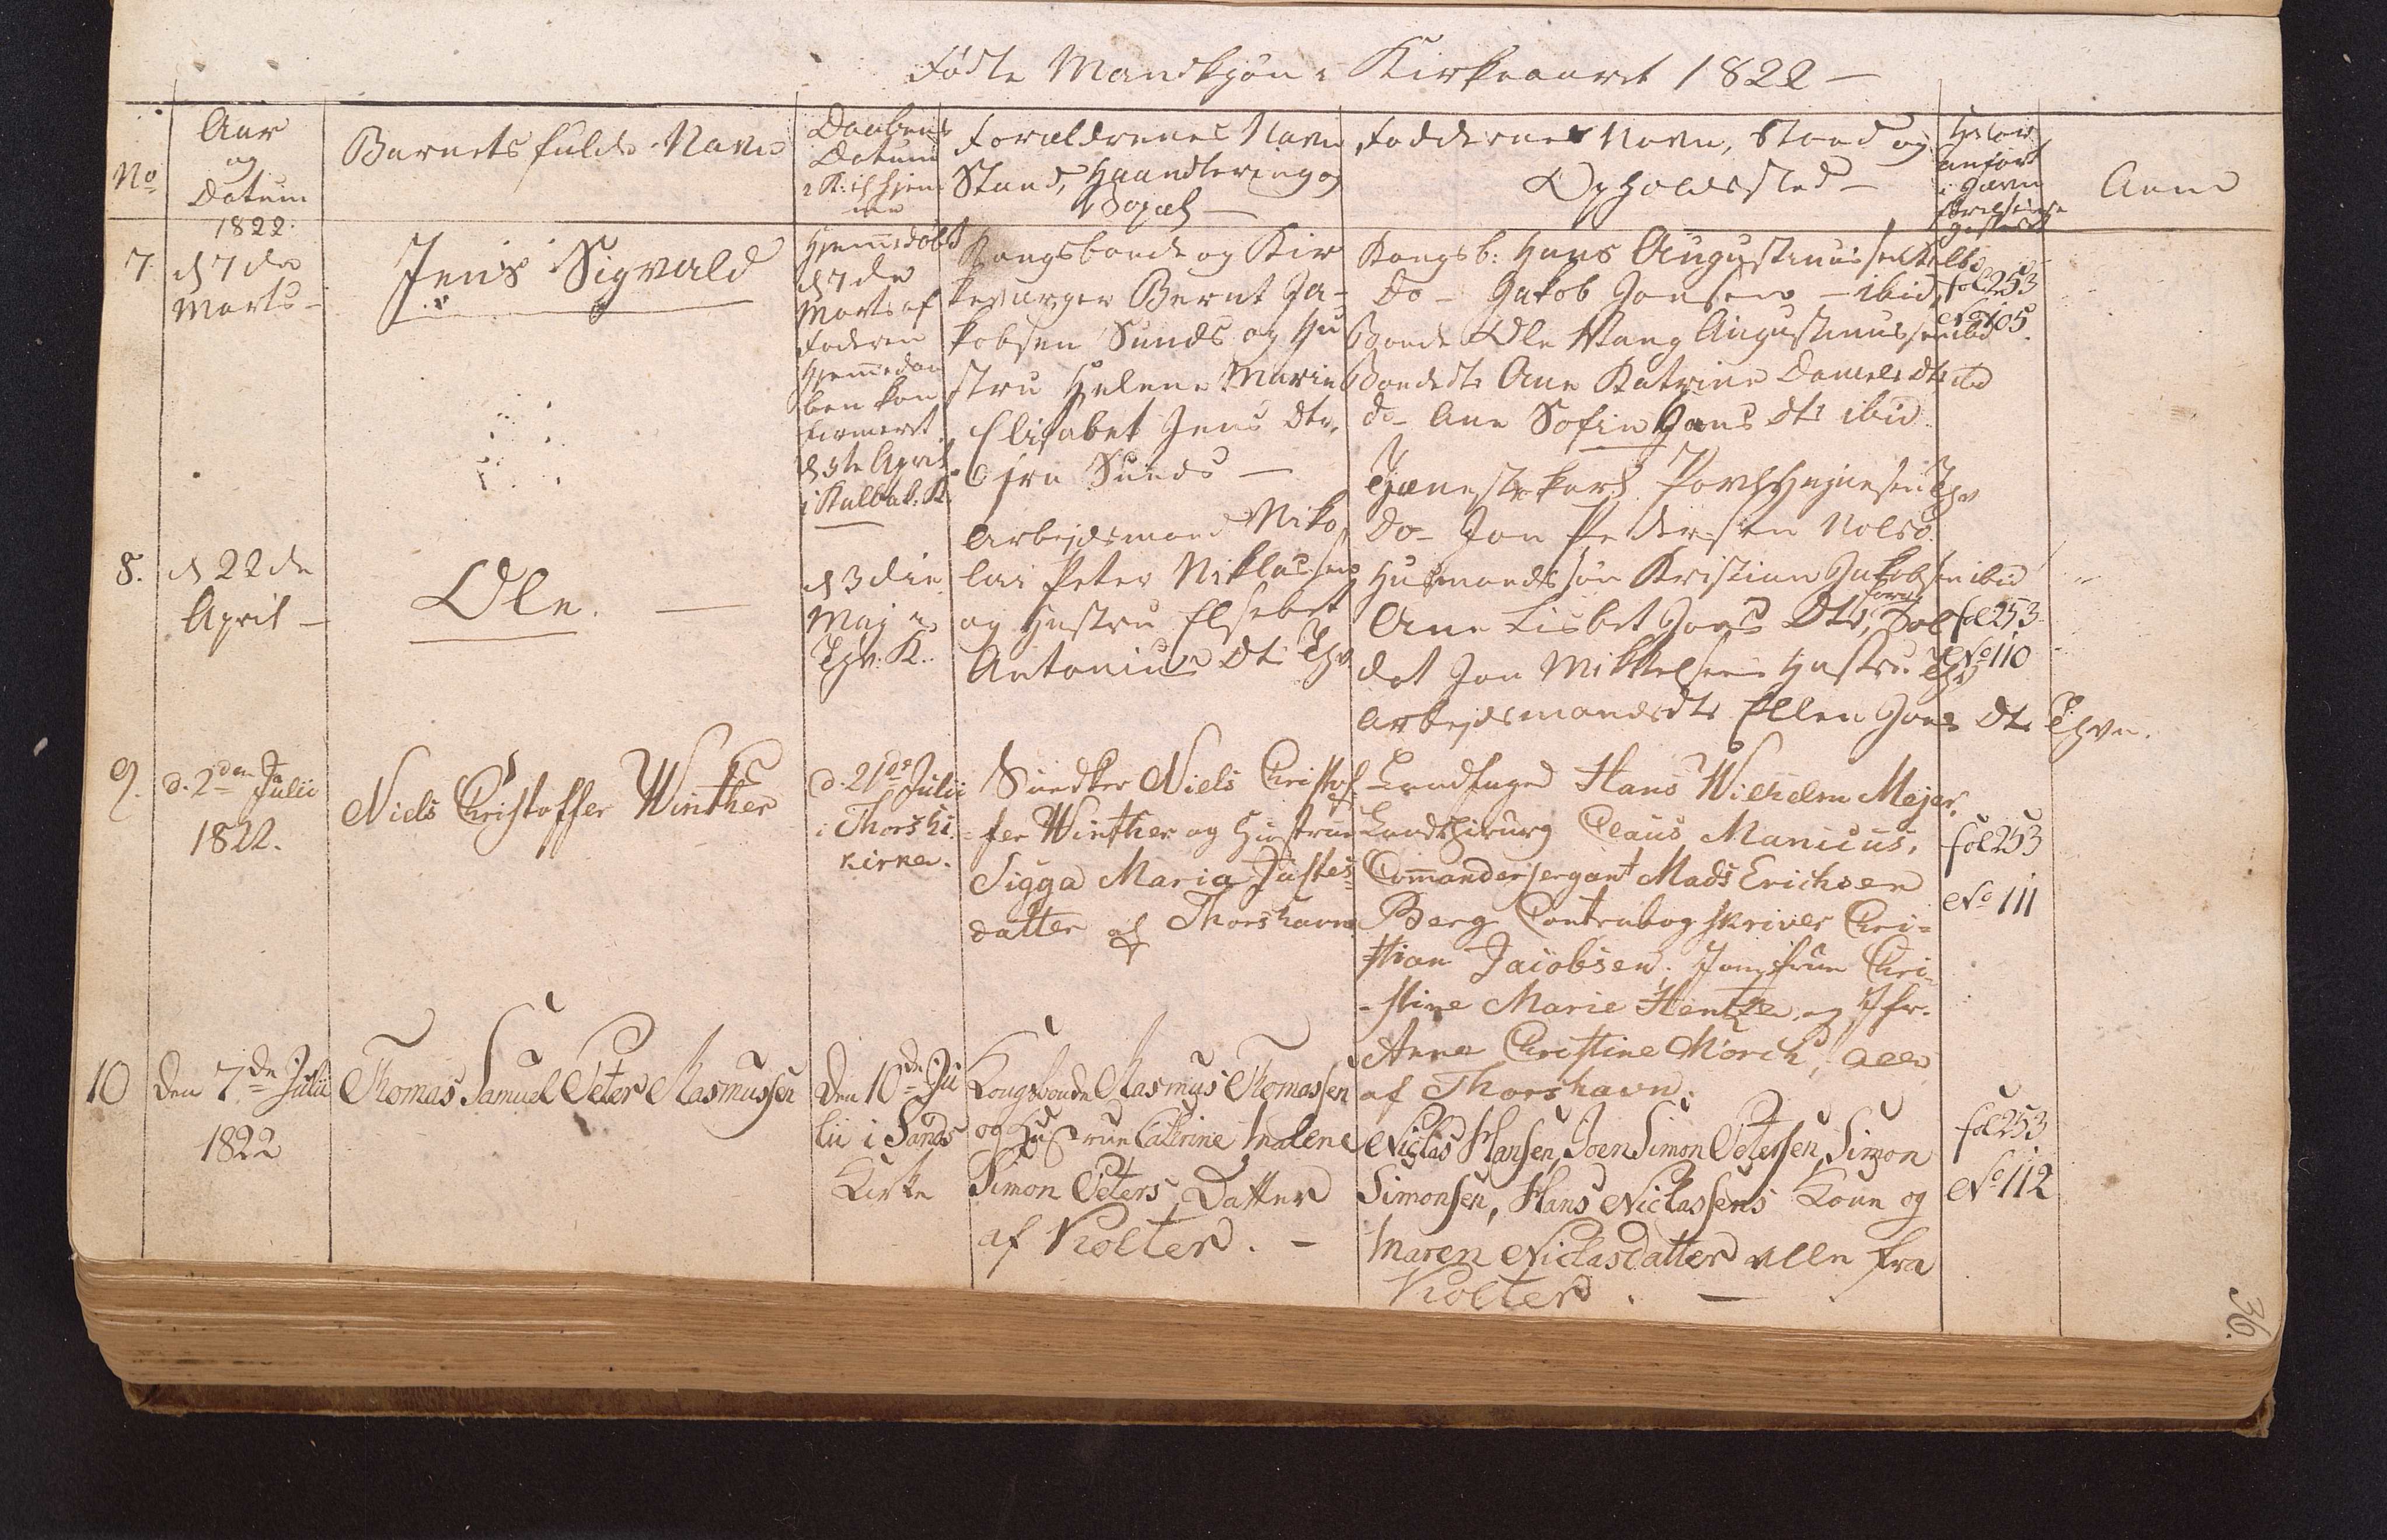 Fødte Mandkjøn i Kirkeaaret 1822 –
No
Aar
og
Datum
1822.
Barnets fulde Navn
Daabens
Datum
i K: ell hjem
me
Forældrenes Navn
Stand, Haandtering og
Bopæl –
Faddernes Navn, Stand og
Opholdssted –
Hvor
anført
i Jævn
førelses re
gisteret
Anm
7.
d 7de
Marts –
Jens Sigvald
Hjemmedøbt
d 7de
Marts af
Faderen
Hjemmedaa
ben kon
firmeret
April
i Kalbak. K.
Kongsbonde og Kir
keværger Bernt Ja-
kobsen Sunds og Hu
stru Helene Marie
Elisabet Jens Dtr.
fra Sunds –
Kongsb: Hans Augustinussen Kalb:
Do – Jakob Joensen – ibid,
Bonde Ole Vang Augustinussen ibd
Bondedtr Ane Katrine Daniels Dtr ibd
do – Ane Sofie Hans Dtr ibid
fol 253
No 105.
8.
d 22de
April –
Ole. –
d 3die
Maj i
Thv: K.
Arbejdsmand Niko
lai Peter Niklassen
og Hustru Elsebet
Antonius Dtr Thv
Tjænestekarl Povl Hejnesen Thv
Do – Jon Pedersen Nolsø
Huusmands søn Kristian Jakobsen ibid
Ane Lisbet Joens Dtr, Sol
dat Jon Mikkelsens Hustru Thv
Arbejdsmandsdtr Ellen Joens Dtr Thvn.
fol 253
No 110
9.
d. 2den Julii
1822.
Niels Christoffer Winther
d. 21de Julii
i Thorsh:
kirke.
Snedker Niels Christof
= fer Winther og Hustrue
Sigga Maria Justes=
datter af Thorshavn
Landfoged Hans Wilhelm Mejer,
Landchirurg Claus Manicus,
Comandersergant Mads Erichsen
Berg Contrabogskriver Chri=
=stian Jacobsen; Jomfrue Chri=
-stine Marie Hentze, og Jfr.
Anne Christine Mörch, alle
af Thorshavn.
fol 253
No 111
10
Den 7de Julii
1822
Thomas Samuel Peter Rasmussen
Den 10de Ju
lii i Sands
Kirke
Kongsbonde Rasmus Thomassen
og Hustrue Catrine Malene
Simon Peters Datter
af Kolter. –
Niclas Hansen, Joen Simon Petersen, Simon
Simonsen, Hans Niclassens Kone og
Maren Niclasdatter alle fra
Kolter. –
fol 253
No 112
36.